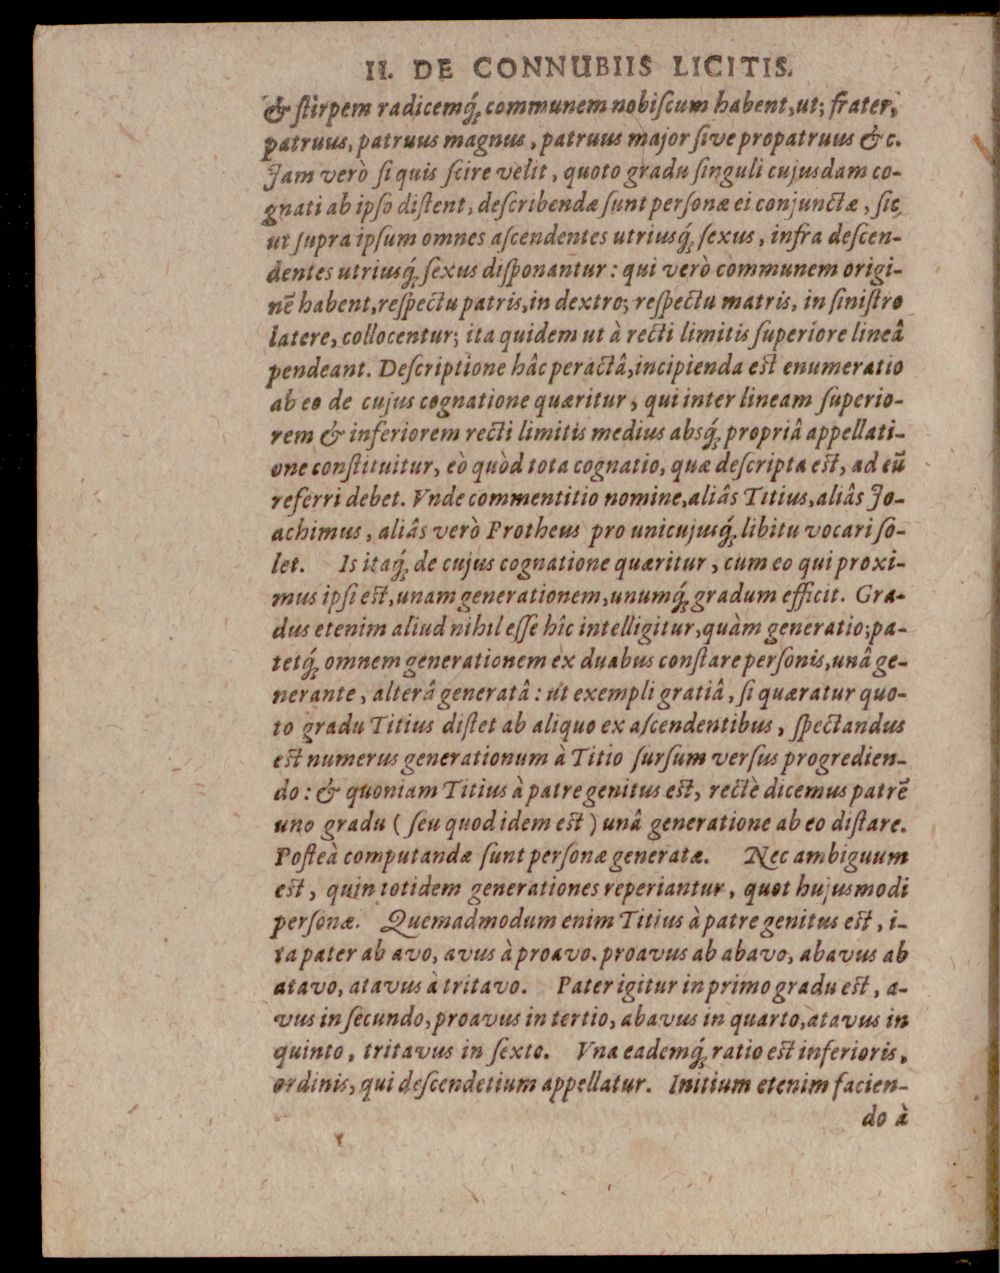 II. DE CONNUBIIS LICITIS.
& ſtirpem radicemq́; communem nobiſcum habent, ut; frater,
patruus, patruus magnus, patruus major ſive propatruus &c.
Jam verò ſi quis ſcire velit, quoto gradu ſinguli cujusdam co-
gnati ab ipſo diſtent, deſcribendæ ſunt perſonæ ei conjunctæ, ſic
ut ſupra ipſum omnes aſcendentes utriusq́; ſexus, infra deſcen-
dentes utriusq́; ſexus diſponantur: qui verò communem origi-
nē habent, reſpectu patris, in dextro; reſpectu matris, in ſiniſtro
latere, collocentur; ita quidem ut à recti limitis ſuperiore lineâ
pendeant. Deſcriptione hâc peractâ, incipienda est enumeratio
ab eo de cujus cognatione quæritur, qui inter lineam ſuperio-
rem & inferiorem recti limitis medius absq́; propriâ appellati-
one conſtituitur, eò quòd tota cognatio, quæ deſcripta est, ad eū
referri debet. Vnde commentitio nomine, aliâs Titius, aliâs Jo-
achimus, aliâs verò Protheus pro unicujusq́; libitu vocari ſo-
let. Is itaq́; de cujus cognatione quæritur, cum eo qui proxi-
mus ipſi est, unam generationem, unumq́; gradum efficit. Gra-
dus etenim aliud nihil eſſe hîc intelligitur, quàm generatio; pa-
tetq́; omnem generationem ex duabus conſtare perſonis, unâ ge-
nerante, alterâ generatâ: ut exempli gratiâ, ſi quæratur quo-
to gradu Titius diſtet ab aliquo ex aſcendentibus, ſpectandus
est numerus generationum à Titio ſurſum verſus progredien-
do: & quoniam Titius à patre genitus est, rectè dicemus patrē
uno gradu (ſeu quod idem est) unâ generatione ab eo diſtare.
Poſteà computandæ ſunt perſonæ generatæ. Nec ambiguum
est, quin totidem generationes reperiantur, quot hujusmodi
perſonæ. Quemadmodum enim Titius à patre genitus est, i-
ta pater ab avo, avus à proavo. proavus ab abavo, abavus ab
atavo, atavus à tritavo. Pater igitur in primo gradu est, a-
vus in ſecundo, proavus in tertio, abavus in quarto, atavus in
quinto, tritavus in ſexto. Vna eademq́; ratio est inferioris,
ordinis, qui deſcendetium appellatur. Initium etenim facien-
do à